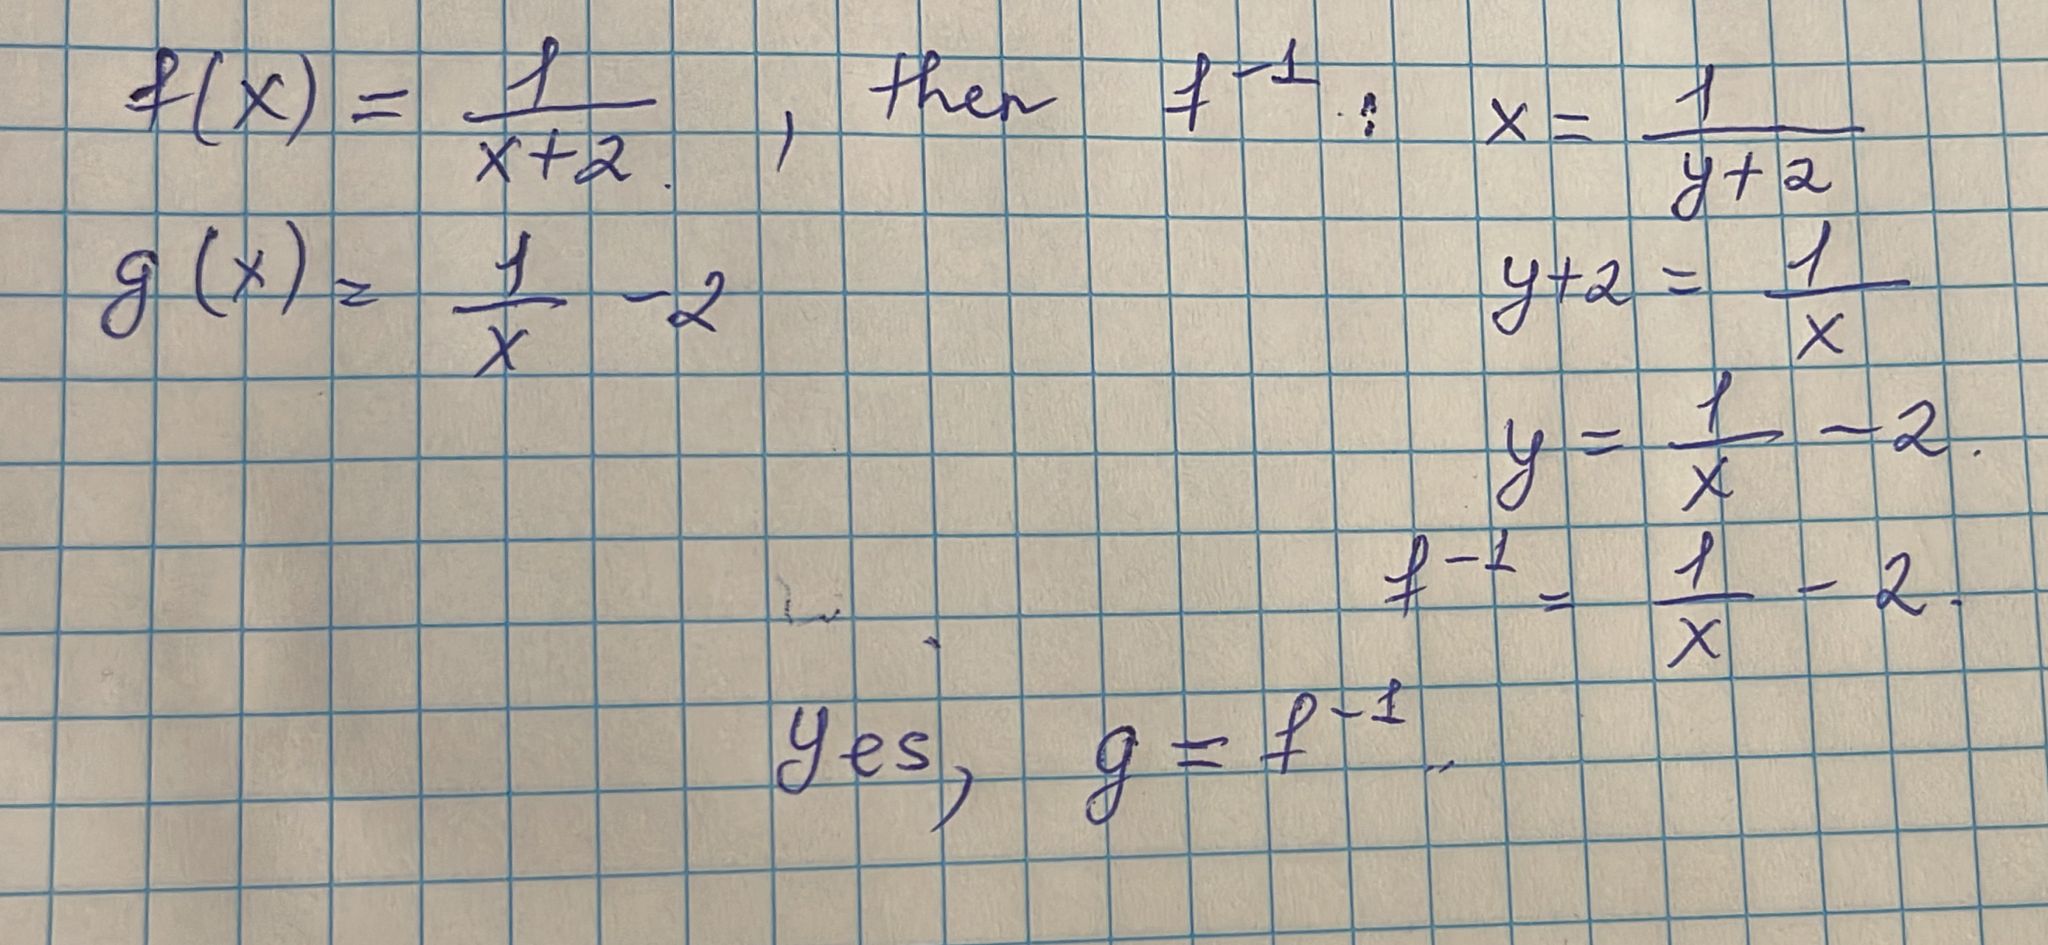 f(x) = 1/(x+2), then f⁻¹: x = 1/(y+2)
g(x) = 1/x - 2
y+2 = 1/x
y = 1/x - 2.
f⁻¹ = 1/x - 2.
Yes, g = f⁻¹.